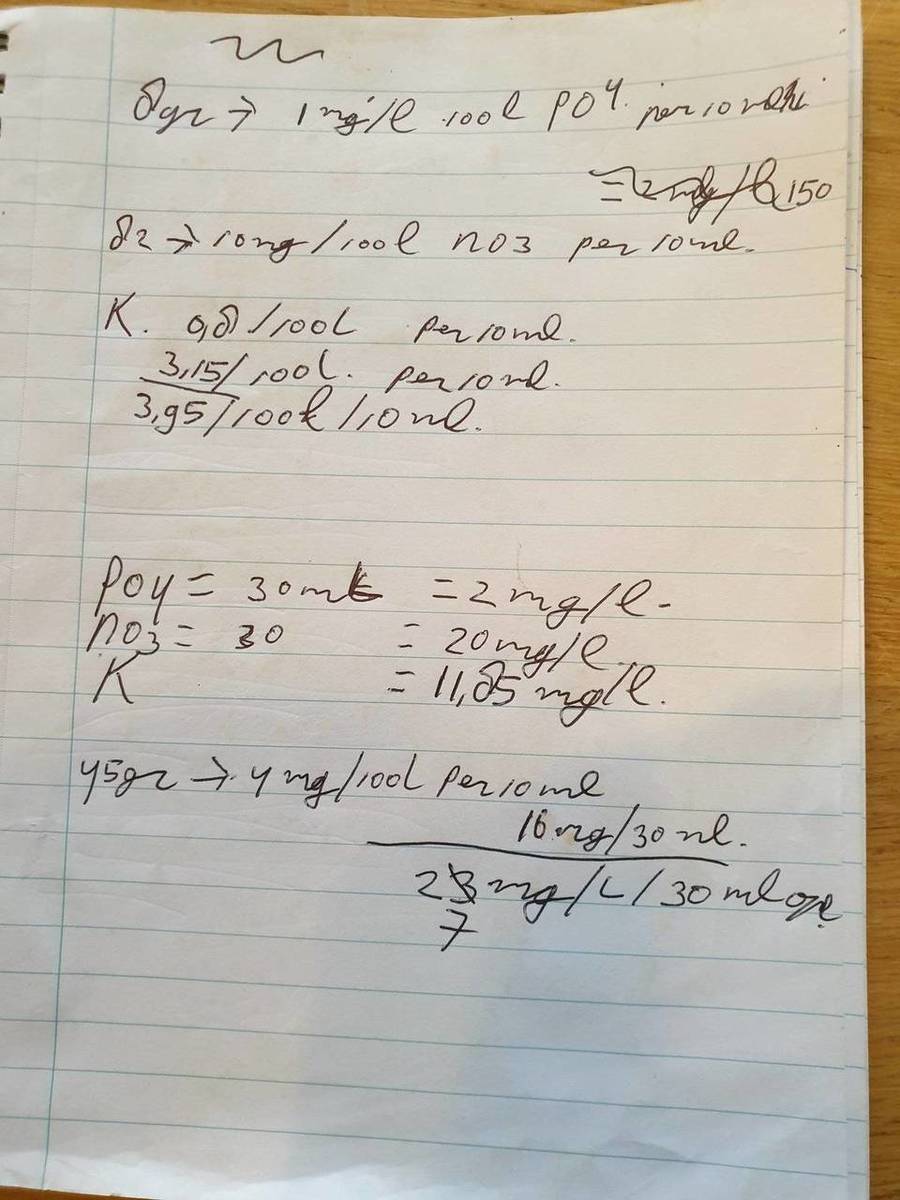 8gr → 1mg/l 100l PO4. per 10ml
= 2mg/l 150
82 → 10mg/100l NO3 per 10ml.
K. 0,8/100L per 10ml.
3,15/100L. per 10ml.
3,95/100l/10ml.
PO4 = 30ml = 2mg/l.
NO3 = 30 = 20mg/l.
K = 11,85mg/l.
45gr → 4mg/100L per 10ml
16mg/30ml.
23mg/L/30ml
7